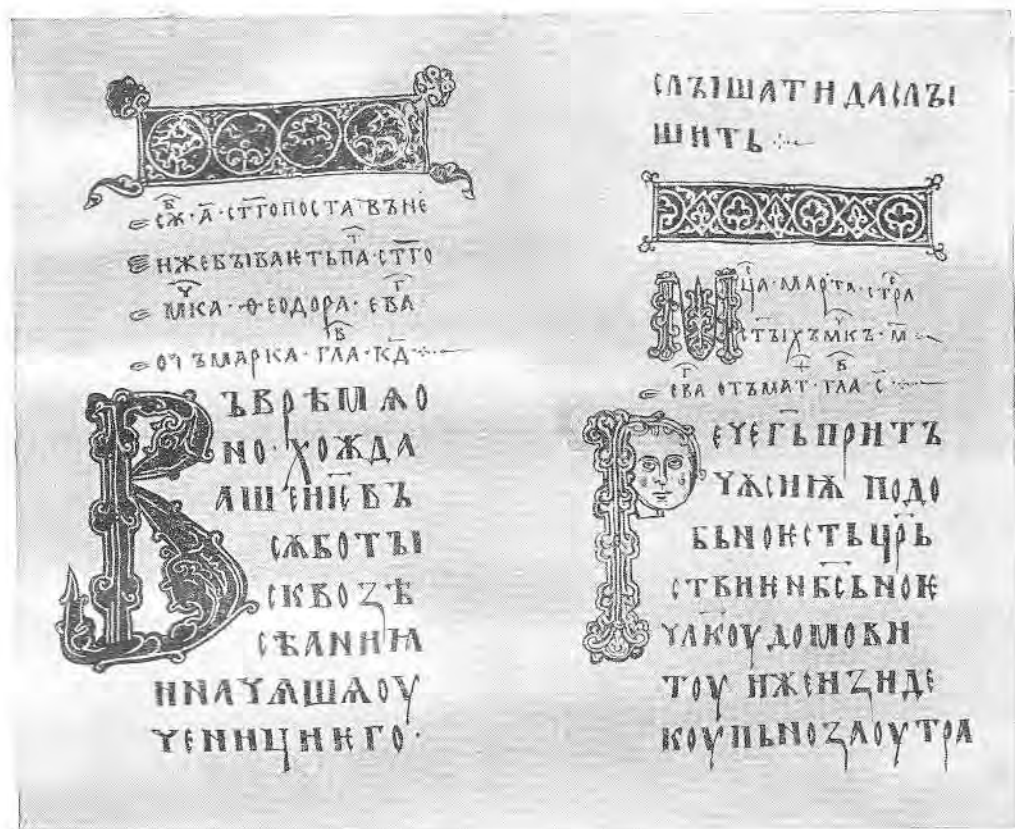 сѫ҃ᲂ҇б · а҃ · ст҃гопоста въне
ѥнжебываѥтьпат҇ · ст҃го
мч҃ка · ѳеодора · еваг҇
отъмарка · глав҇ · кд҃
Въврѣмѧо
но · хожда
ашеиі҃свъ
сѫботы
сквозѣ
сѣаниꙗ
иначѧшѧоу
ченициѥго ·
слышатидаслы
шить
Мц҃а · марта · стра
стыхъмч҃къ · м҃
еваг҇ отъмат҇ · глав҇ · с҃
Речегь҃прит
чѫсиѭ подо
бьноѥстьцр҃ь
ствиѥнб҃сьноѥ
чл҃коудомови
тоу ижеизиде
коупьнозаоутра